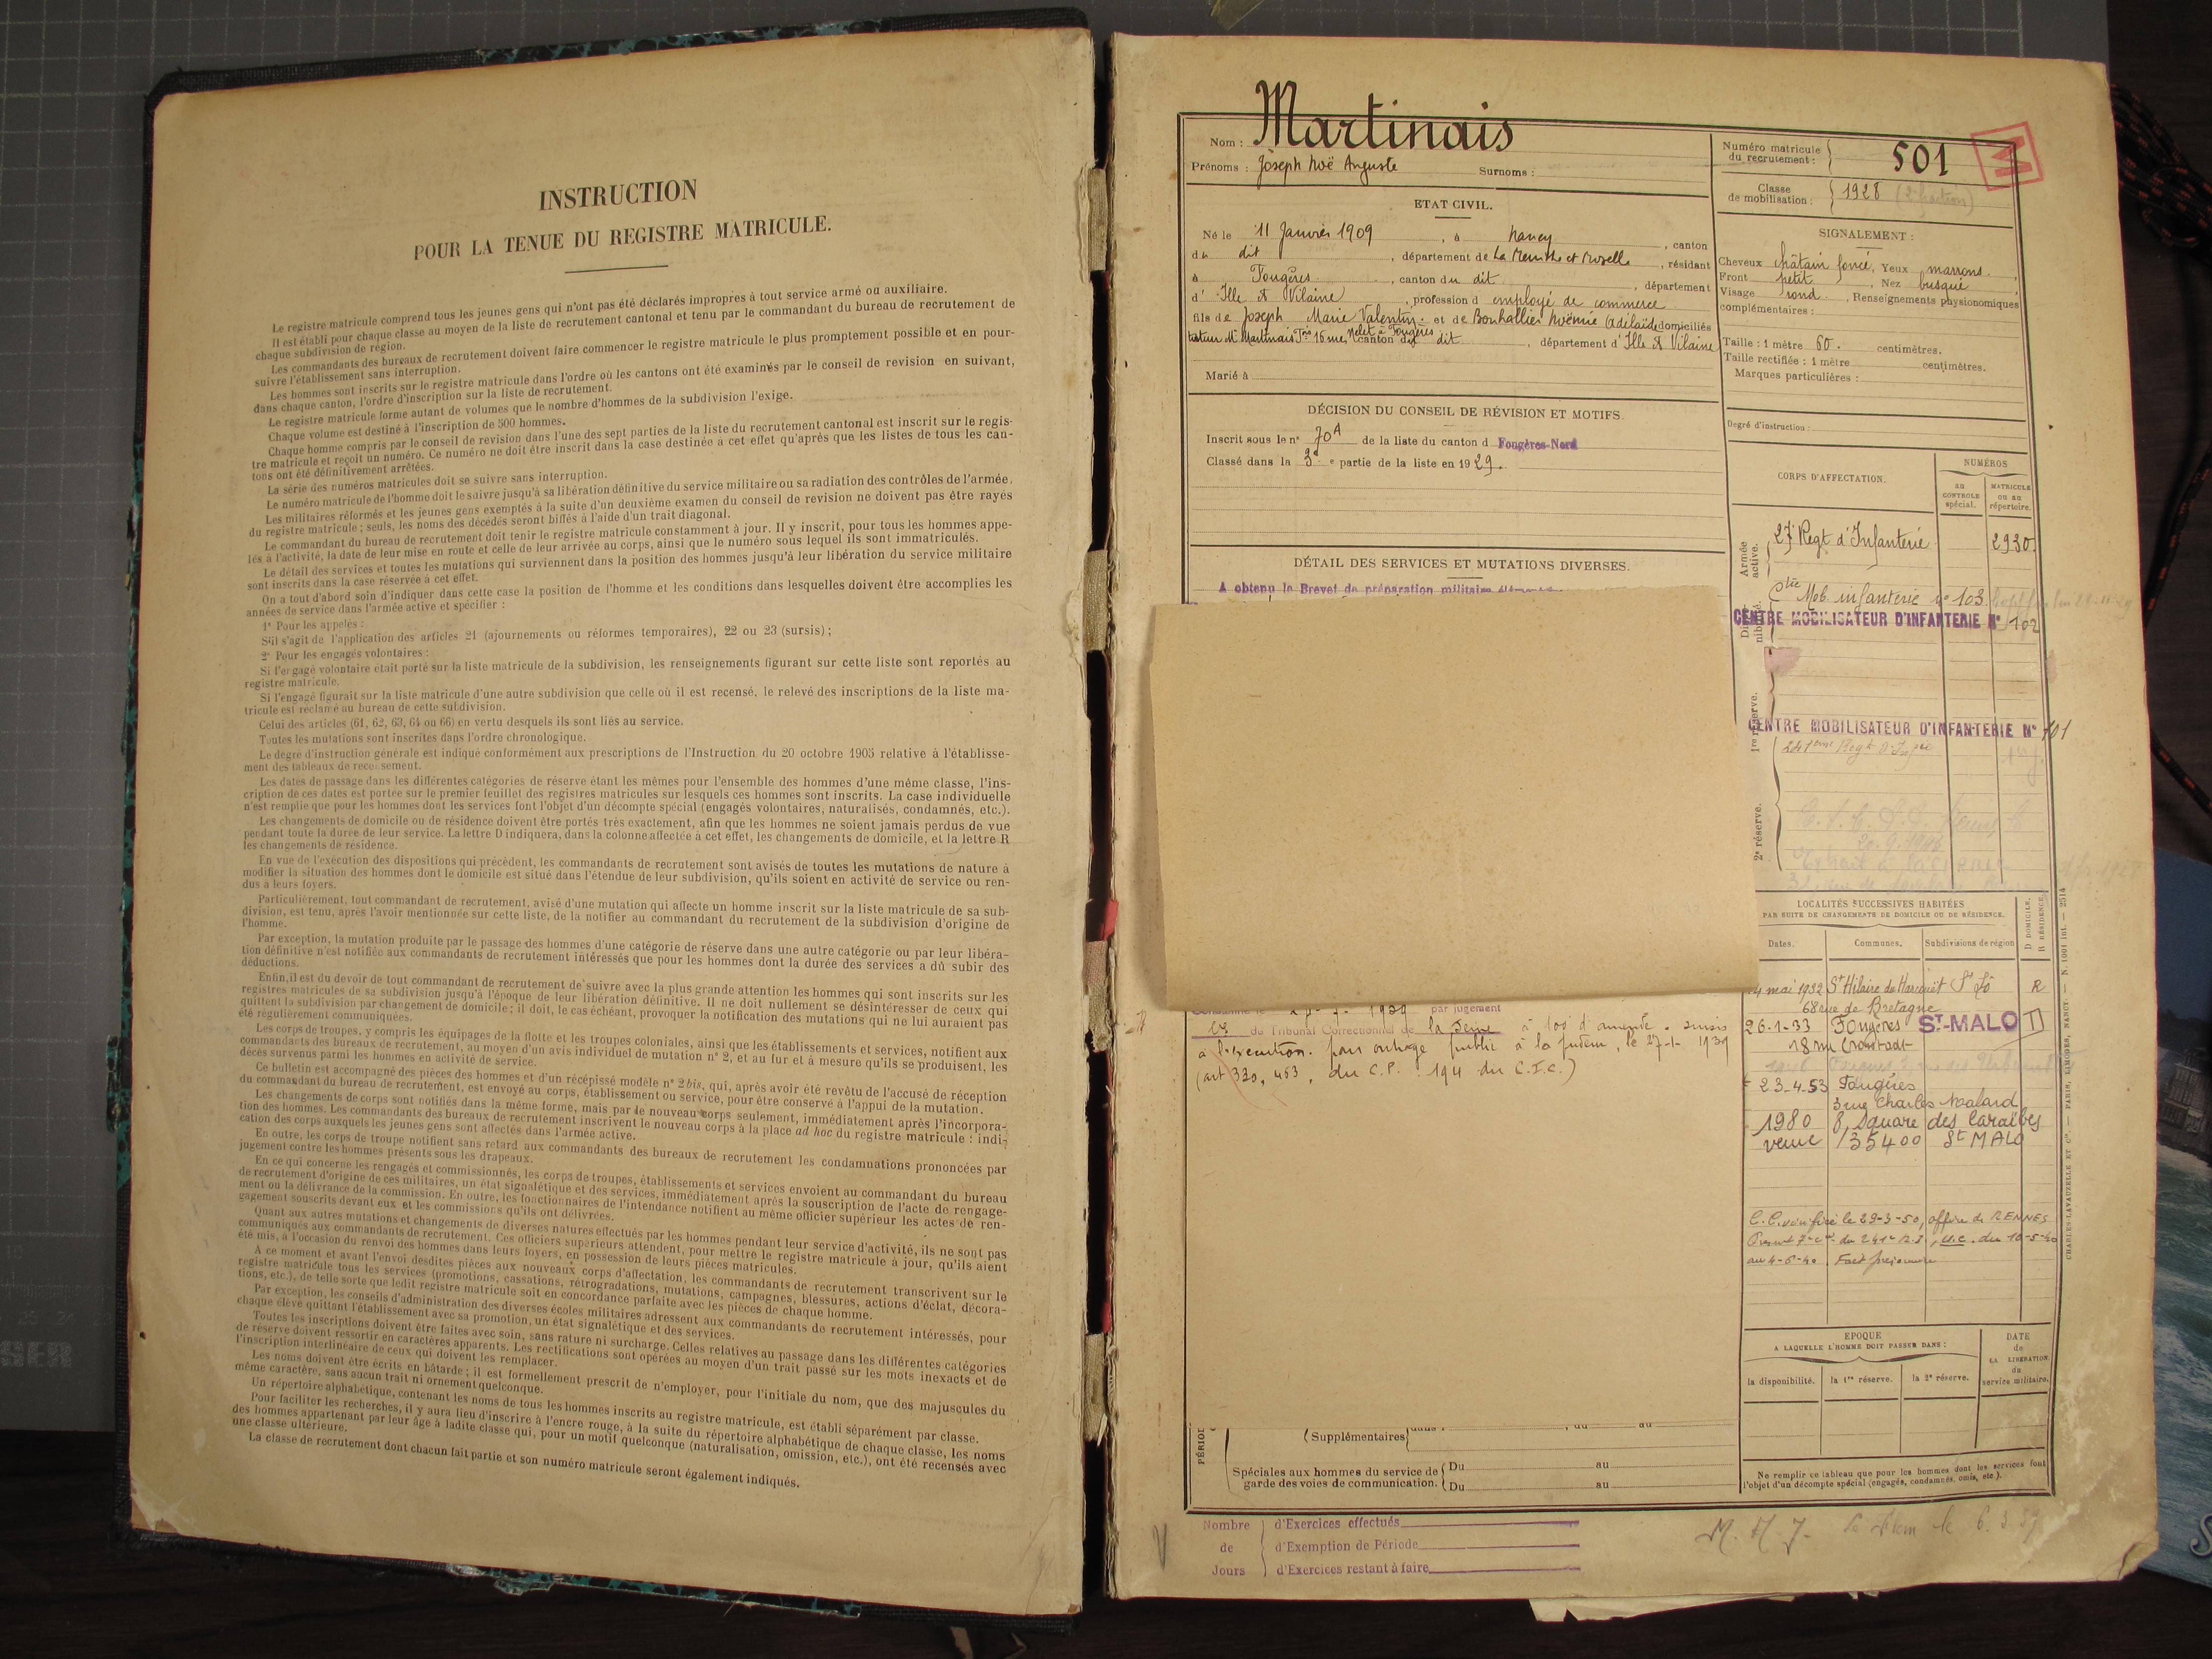 INSTRUCTION
POUR LA TENUE DU REGISTRE MATRICULE.
Le registre matricule comprend tous les jeunes gens qui n'ont pas été déclarés impropres à tout service armé ou auxiliaire.
Il est établi pour chaque classe au moyen de la liste de recrutement cantonal et tenu par le commandant du bureau de recrutement de
chaque subdivision de région.
Les commandants des bureaux de recrutement doivent faire commencer le registre matricule le plus promptement possible et en pour-
suivre l'établissement sans interruption.
Les hommes sont inscrits sur le registre matricule dans l'ordre où les cantons ont été examinés par le conseil de revision en suivant,
dans chaque canton, l'ordre d'inscription sur la liste de recrutement.
Le registre matricule forme autant de volumes que le nombre d'hommes de la subdivision l'exige.
Chaque volume est destiné à l'inscription de 500 hommes.
Chaque homme compris par le conseil de revision dans l'une des sept parties de la liste du recrutement cantonal est inscrit sur le regis-
tre matricule et reçoit un numéro. Ce numéro ne doit être inscrit dans la case destinée à cet effet qu'après que les listes de tous les can-
tons ont été définitivement arrêtées.
La série des numéros matricules doit se suivre sans interruption.
Le numéro matricule de l'homme doit le suivre jusqu'à sa libération définitive du service militaire ou sa radiation des contrôles de l'armée.
Les militaires réformés et les jeunes gens exemptés à la suite d'un deuxième examen du conseil de revision ne doivent pas être rayés
du registre matricule ; seuls, les noms des décédés seront biffés à l'aide d'un trait diagonal.
Le commandant du bureau de recrutement doit tenir le registre matricule constamment à jour. Il y inscrit, pour tous les hommes appe-
lés à l'activité, la date de leur mise en route et celle de leur arrivée au corps, ainsi que le numéro sous lequel ils sont immatriculés.
Le détail des services et toutes les mutations qui surviennent dans la position des hommes jusqu'à leur libération du service militaire
sont inscrits dans la case réservée à cet effet.
On a tout d'abord soin d'indiquer dans cette case la position de l'homme et les conditions dans lesquelles doivent être accomplies les
années de service dans l'armée active et spécifier :
1° Pour les appelés :
S'il s'agit de l'application des articles 21 (ajournements ou réformes temporaires), 22 ou 23 (sursis) ;
2° Pour les engagés volontaires :
Si l'engagé volontaire était porté sur la liste matricule de la subdivision, les renseignements figurant sur cette liste sont reportés au
registre matricule.
Si l'engagé figurait sur la liste matricule d'une autre subdivision que celle où il est recensé, le relevé des inscriptions de la liste ma-
tricule est réclamé au bureau de cette subdivision.
Celui des articles (61, 62, 63, 64 ou 66) en vertu desquels ils sont liés au service.
Toutes les mutations sont inscrites dans l'ordre chronologique.
Le degré d'instruction générale est indiqué conformément aux prescriptions de l'Instruction du 20 octobre 1905 relative à l'établisse-
ment des tableaux de recensement.
Les dates de passage dans les différentes catégories de réserve étant les mêmes pour l'ensemble des hommes d'une même classe, l'ins-
cription de ces dates est portée sur le premier feuillet des registres matricules sur lesquels ces hommes sont inscrits. La case individuelle
n'est remplie que pour les hommes dont les services font l'objet d'un décompte spécial (engagés volontaires, naturalisés, condamnés, etc.).
Les changements de domicile ou de résidence doivent être portés très exactement, afin que les hommes ne soient jamais perdus de vue
pendant toute la durée de leur service. La lettre D indiquera, dans la colonne affectée à cet effet, les changements de domicile, et la lettre R
les changements de résidence.
En vue de l'exécution des dispositions qui précèdent, les commandants de recrutement sont avisés de toutes les mutations de nature à
modifier la situation des hommes dont le domicile est situé dans l'étendue de leur subdivision, qu'ils soient en activité de service ou ren-
dus à leurs foyers.
Particulièrement, tout commandant de recrutement, avisé d'une mutation qui affecte un homme inscrit sur la liste matricule de sa sub-
division, est tenu, après l'avoir mentionnée sur cette liste, de la notifier au commandant du recrutement de la subdivision d'origine de
l'homme.
Par exception, la mutation produite par le passage des hommes d'une catégorie de réserve dans une autre catégorie ou par leur libéra-
tion définitive n'est notifiée aux commandants de recrutement intéressés que pour les hommes dont la durée des services a dû subir des
déductions.
Enfin, il est du devoir de tout commandant de recrutement de suivre avec la plus grande attention les hommes qui sont inscrits sur les
registres matricules de sa subdivision jusqu'à l'époque de leur libération définitive. Il ne doit nullement se désintéresser de ceux qui
quittent la subdivision par changement de domicile ; il doit, le cas échéant, provoquer la notification des mutations qui ne lui auraient pas
été régulièrement communiquées.
Les corps de troupes, y compris les équipages de la flotte et les troupes coloniales, ainsi que les établissements et services, notifient aux
commandants des bureaux de recrutement, au moyen d'un avis individuel de mutation n° 2, et au fur et à mesure qu'ils se produisent, les
décès survenus parmi les hommes en activité de service.
Ce bulletin est accompagné des pièces des hommes et d'un récépissé modèle n° 2 bis, qui, après avoir été revêtu de l'accusé de réception
du commandant du bureau de recrutement, est envoyé au corps, établissement ou service, pour être conservé à l'appui de la mutation.
Les changements de corps sont notifiés dans la même forme, mais par le nouveau corps seulement, immédiatement après l'incorpora-
tion des hommes. Les commandants des bureaux de recrutement inscrivent le nouveau corps à la place ad hoc du registre matricule : indi-
cation des corps auxquels les jeunes gens sont affectés dans l'armée active.
En outre, les corps de troupe notifient sans retard aux commandants des bureaux de recrutement les condamnations prononcées par
jugement contre les hommes présents sous les drapeaux.
En ce qui concerne les rengagés et commissionnés, les corps de troupes, établissements et services envoient au commandant du bureau
de recrutement d'origine de ces militaires, un état signalétique et des services, immédiatement après la souscription de l'acte de rengage-
ment ou la délivrance de la commission. En outre, les fonctionnaires de l'intendance notifient au même officier supérieur les actes de ren-
gagement souscrits devant eux et les commissions qu'ils ont délivrées.
Quant aux autres mutations et changements de diverses natures effectués par les hommes pendant leur service d'activité, ils ne sont pas
communiqués aux commandants de recrutement. Ces officiers supérieurs attendent, pour mettre le registre matricule à jour, qu'ils aient
été mis, à l'occasion du renvoi des hommes dans leurs foyers, en possession de leurs pièces matricules.
A ce moment et avant l'envoi desdites pièces aux nouveaux corps d'affectation, les commandants de recrutement transcrivent sur le
registre matricule tous les services (promotions, cassations, rétrogradations, mutations, campagnes, blessures, actions d'éclat, décora-
tions, etc.), de telle sorte que ledit registre matricule soit en concordance parfaite avec les pièces de chaque homme.
Par exception, les conseils d'administration des diverses écoles militaires adressent aux commandants de recrutement intéressés, pour
chaque élève quittant l'établissement avec sa promotion, un état signalétique et des services.
Toutes les inscriptions doivent être faites avec soin, sans rature ni surcharge. Celles relatives au passage dans les différentes catégories
de réserve doivent ressortir en caractères apparents. Les rectifications sont opérées au moyen d'un trait passé sur les mots inexacts et de
l'inscription interlinéaire de ceux qui doivent les remplacer.
Les noms doivent être écrits en bâtarde ; il est formellement prescrit de n'employer, pour l'initiale du nom, que des majuscules du
même caractère, sans aucun trait ni ornement quelconque.
Un répertoire alphabétique, contenant les noms de tous les hommes inscrits au registre matricule, est établi séparément par classe.
Pour faciliter les recherches, il y aura lieu d'inscrire à l'encre rouge, à la suite du répertoire alphabétique de chaque classe, les noms
des hommes appartenant par leur âge à ladite classe qui, pour un motif quelconque (naturalisation, omission, etc.), ont été recensés avec
une classe ultérieure.
La classe de recrutement dont chacun fait partie et son numéro matricule seront également indiqués.
Nom : Martinais
Prénoms : Joseph Noë Auguste Surnoms :
Numéro matricule du recrutement : 501
M
Classe de mobilisation : 1928
ETAT CIVIL.
Né le 11 Janvier 1909, à Nancy, canton
du dit, département de La Meurthe et Moselle, résidant
à Fougères, canton du dit, département
d' Ille & Vilaine, profession d employé de commerce
fils de Joseph Marie Valentin et de Bonhallier Noëmie Adélaïde domiciliés
tuteur Mr Martinais 16 rue à Fougères canton du dit, département d' Ille & Vilaine
Marié à
SIGNALEMENT :
Cheveux châtain foncé, Yeux marrons,
Front petit, Nez busqué
Visage rond, Renseignements physionomiques
complémentaires :
Taille : 1 mètre 60. centimètres.
Taille rectifiée : 1 mètre centimètres.
Marques particulières :
Degré d'instruction :
DÉCISION DU CONSEIL DE RÉVISION ET MOTIFS.
Inscrit sous le n° 70A de la liste du canton d Fougères-Nord
Classé dans la 3e partie de la liste en 1929.
DÉTAIL DES SERVICES ET MUTATIONS DIVERSES.
A obtenu le Brevet de préparation militaire
CORPS D'AFFECTATION.
NUMÉROS
AU CONTROLE spécial.
MATRICULE ou au répertoire.
Armée active.
27e Regt d'Infanterie 2930
Mob. infanterie n° 103
CENTRE MOBILISATEUR D'INFANTERIE N° 102
1re réserve.
CENTRE MOBILISATEUR D'INFANTERIE N° 101
2e réserve.
LOCALITÉS SUCCESSIVES HABITÉES
PAR SUITE DE CHANGEMENTS DE DOMICILE OU DE RÉSIDENCE.
D DOMICILE, R RÉSIDENCE
Dates. Communes. Subdivisions de région
mai 1932 St Hilaire du Harcouët St Lô R
68 rue de Bretagne
26-1-33 Fougères ST-MALO D
18 rue
23.4.53 Fougères
3 rue Charles Malard
1980 8, Square des Caraïbes
veuve 35400 St MALO
29-3-50, RENNES
du 10-5-40
au 4-6-40
par jugement
du Tribunal Correctionnel de la Seine à 100f d'amende. sursis
à l'exécution. pour outrage public à la pudeur, le 27-1- 1939
(art 330, 463, du C.P. 194 du C.I.C.)
EPOQUE
A LAQUELLE L'HOMME DOIT PASSER DANS :
DATE de LA LIBÉRATION du service militaire.
la disponibilité. la 1re réserve. la 2e réserve.
Ne remplir ce tableau que pour les hommes dont les services font
l'objet d'un décompte spécial (engagés, condamnés, omis, etc.).
Supplémentaires
Spéciales aux hommes du service de garde des voies de communication.
Du au
Du au
Nombre de Jours
d'Exercices effectués
d'Exemption de Période
d'Exercices restant à faire
CHARLES-LAVAUZELLE ET Cie. — PARIS, LIMOGES, NANCY.